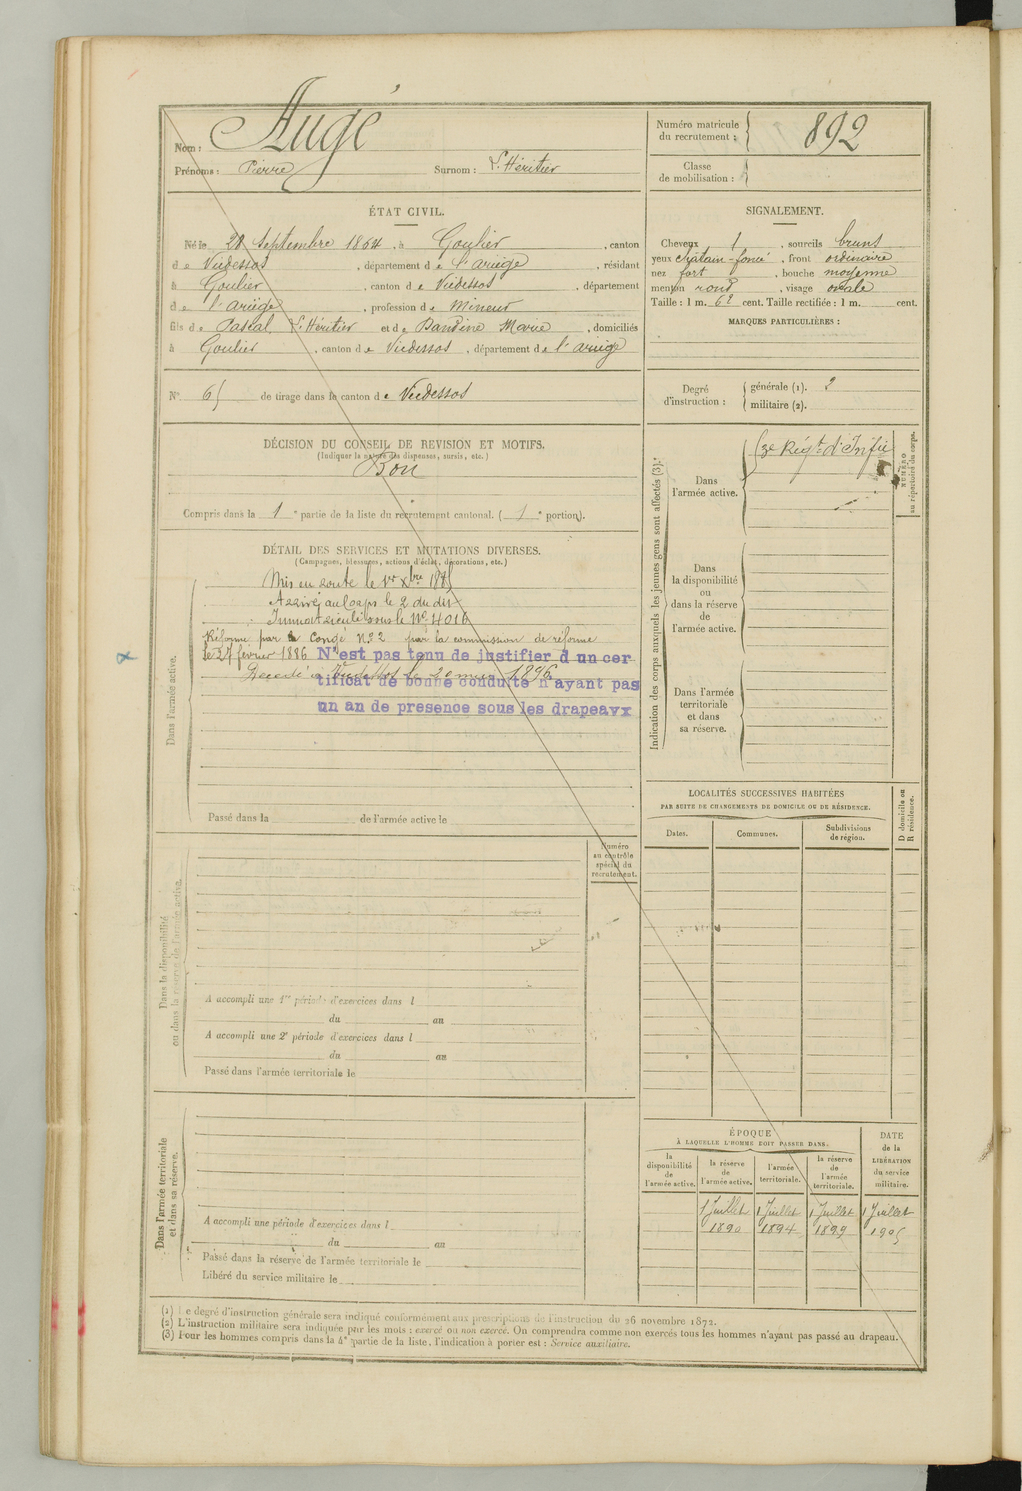 Nom : Augé
Prénoms : Pierre Surnom : L'Héritier
Numéro matricule du recrutement : 892
Classe de mobilisation :
ÉTAT CIVIL.
Né le 28 Septembre 1864, à Goulier, canton
de Vicdessos, département de l'ariège, résidant
à Goulier, canton de Vicdessos, département
de l'ariège, profession de Mineur
fils de Pascal L'Héritier et de Dandine Marie, domiciliés
à Goulier, canton de Vicdessos, département de l'ariège
SIGNALEMENT.
Cheveux , sourcils bruns
yeux chatain-foncé, front ordinaire
nez fort, bouche moyenne
menton rond, visage ovale
Taille : 1 m. 62 cent. Taille rectifiée : 1 m. cent.
MARQUES PARTICULIÈRES :
N° 65 de tirage dans le canton de Vicdessos
Degré d'instruction : générale (1). 2
militaire (2).
DÉCISION DU CONSEIL DE REVISION ET MOTIFS.
(Indiquer la nature des dispenses, sursis, etc.)
Bon
Compris dans la 1e partie de la liste du recrutement cantonal. ( 1e portion).
DÉTAIL DES SERVICES ET MUTATIONS DIVERSES.
(Campagnes, blessures, actions d'éclat, décorations, etc.)
Dans l'armée active.
Mis en route le 1er Xbre 1885
Arrivé au Corps le 2 du dit
Immatriculé sous le N° 4016
Réformé par Congé N° 2 par la commission de réforme
le 27 février 1886 N'est pas tenu de justifier d un cer
Décédé à Vicdessos le 20 mars 1896
tificat de bonne conduite n'ayant pas
un an de presence sous les drapeavx
Passé dans la de l'armée active le
Indication des corps auxquels les jeunes gens sont affectés (3).
Dans l'armée active.
Régt d'Infie
NUMÉRO au répertoire du corps.
Dans la disponibilité ou dans la réserve de l'armée active.
Dans l'armée territoriale et dans sa réserve.
LOCALITÉS SUCCESSIVES HABITÉES
PAR SUITE DE CHANGEMENTS DE DOMICILE OU DE RÉSIDENCE.
Dates. Communes. Subdivisions de région.
D domicile ou R résidence.
Numéro au contrôle spécial du recrutement.
Dans la disponibilité ou dans la réserve de l'armée active.
A accompli une 1re période d'exercices dans l
du au
A accompli une 2e période d'exercices dans l
du au
Passé dans l'armée territoriale le
Dans l'armée territoriale et dans sa réserve.
A accompli une période d'exercices dans l
du au
Passé dans la réserve de l'armée territoriale le
Libéré du service militaire le
ÉPOQUE
À LAQUELLE L'HOMME DOIT PASSER DANS.
la disponibilité de l'armée active.
la réserve de l'armée active.
l'armée territoriale.
la réserve de l'armée territoriale.
DATE de la LIBÉRATION du service militaire.
1 Juillet 1 Juillet 1 Juillet 1 Juillet
1890 1894 1899 1905
(1) Le degré d'instruction générale sera indiqué conformément aux prescriptions de l'instruction du 26 novembre 1872.
(2) L'instruction militaire sera indiquée par les mots : exercé ou non exercé. On comprendra comme non exercés tous les hommes n'ayant pas passé au drapeau.
(3) Pour les hommes compris dans la 4e partie de la liste, l'indication à porter est : Service auxiliaire.